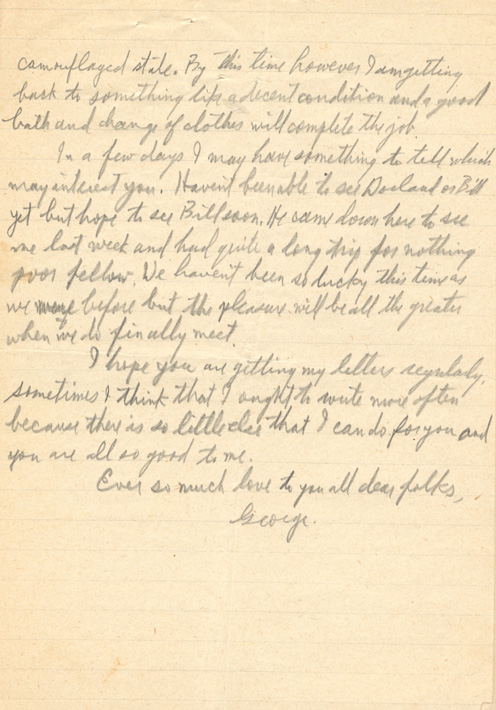 camouflaged state. By this time however I am getting
back to something like a decent condition and a good
bath and change of clothes will complete the job.
In a few days I may have something to tell which
may interest you. Haven't been able to see Dorland or Bill
yet but hope to see Bill soon. He came down here to see
me last week and had quite a long trip for nothing
poor fellow. We haven't been so lucky this time as
we were before but the pleasure will be all the greater
when we do finally meet.
I hope you are getting my letters regularly,
sometimes I think that I ought to write more often
because there is so little else that I can do for you and
you are all so good to me.
Ever so much love to you all dear folks,
George.